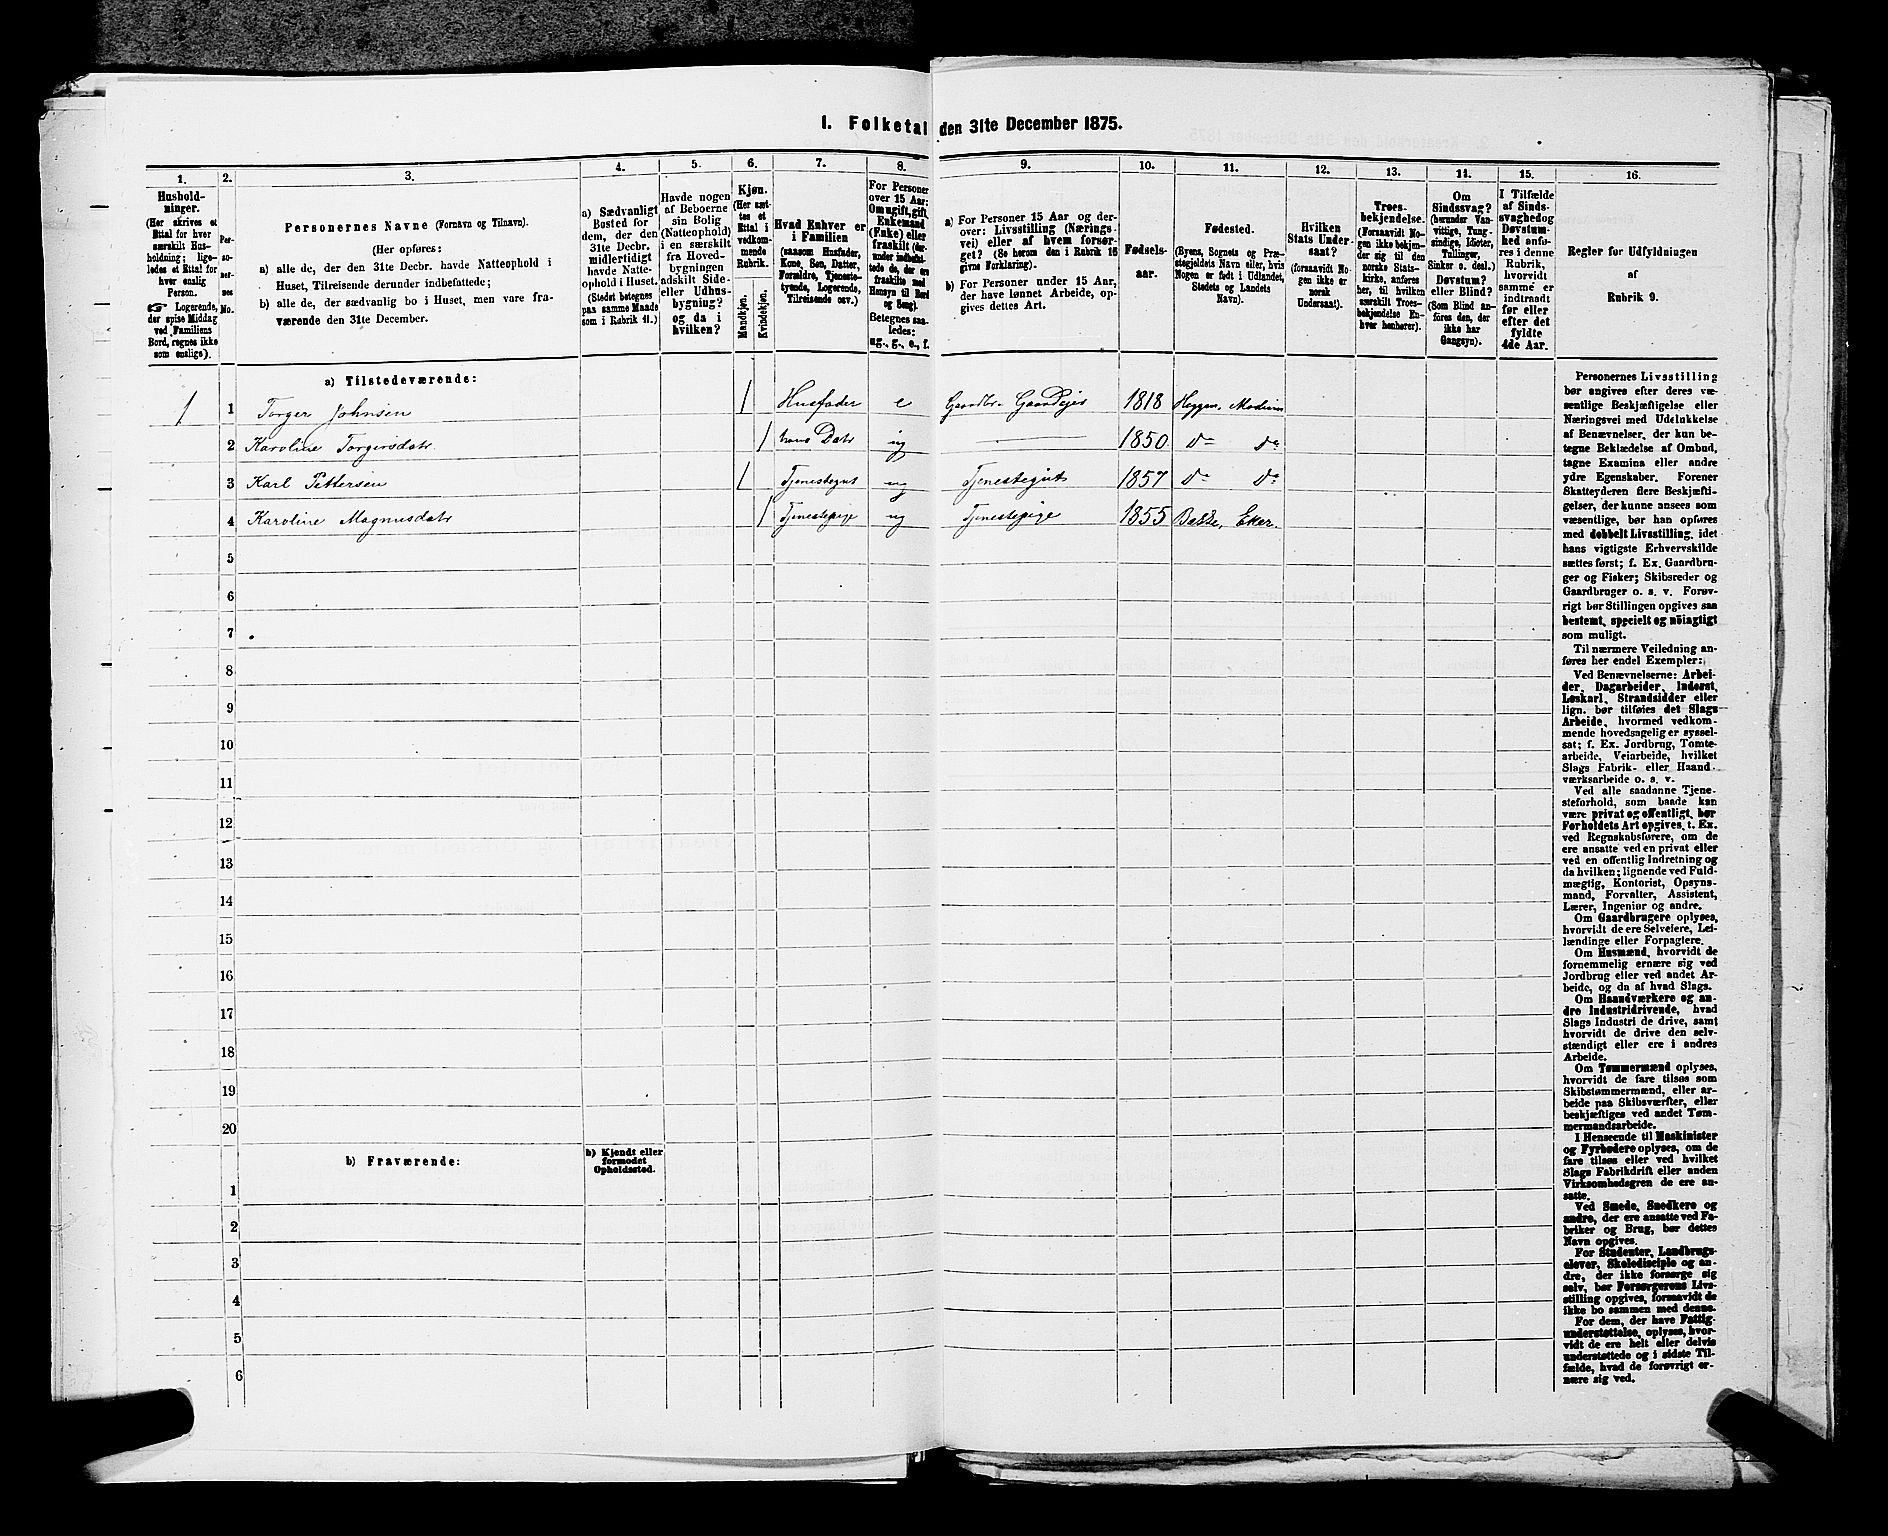 1. Folketal den 31te December 1875.
1. 2. 3. 4. 5. 6. 7. 8. 9. 10. 11. 12. 13. 14. 15. 16.
Hushold-
ninger.
(Her skrives et
Ettal for hver
særskilt Hus-
holdning; lige-
ledes et Ettal for
hver enslig
Person.
☞ Logerende,
der spise Middag
ved Familiens
Bord, regnes ikke
som enslige).
Per-
so-
ner-
nes
No.
Personernes Navne (Fornavn og Tilnavn).
(Her opføres:
a) alle de, der den 31te Decbr. havde Natteophold i
Huset, Tilreisende derunder indbefattede;
b) alle de, der sædvanlig bo i Huset, men vare fra-
værende den 31te December.
a) Sædvanligt
Bosted for
dem, der den
31te Decbr.
midlertidigt
havde Natte-
ophold i Huset.
(Stedet betegnes
paa samme Maade
som i Rubrik 11.)
Havde nogen
af Beboerne
sin Bolig
(Natteophold)
i en særskilt
fra Hoved-
bygningen
adskilt Side-
eller Udhus-
bygning?
og da i
hvilken?
Kjøn.
(Her sæt-
tes et
Ettal i
vedkom-
mende
Rubrik.
Mandkjøn.
Kvindekjøn.
Hvad Enhver er
i Familien
(saasom Husfader,
Kone, Søn, Datter,
Forældre, Tjeneste-
tyende, Logerende,
Tilreisende osv.)
For Personer
over 15 Aar:
Om ugift, gift,
Enkemand
(Enke) eller
fraskilt (der-
under indbefat-
tede de, der ere
fraskilte med
Hensyn til Bord
og Seng).
Betegnes saa-
ledes:
ug., g., e., f.
a) For Personer 15 Aar og der-
over: Livsstilling (Nærings-
vei) eller af hvem forsør-
get? (Se herom den i Rubrik 16
givne Forklaring).
b) For Personer under 15 Aar,
der have lønnet Arbeide, op-
gives dettes Art.
Fødsels-
aar.
Fødested.
(Byens, Sognets og Præ-
stegjeldets Navn eller, hvis
Nogen er født i Udlandet,
Stedets og Landets
Navn).
Hvilken
Stats Under-
saat?
(forsaavidt No-
gen ikke er
norsk
Undersaat).
Troes-
bekjendelse.
(Forsaavidt No-
gen ikke bekjen-
der sig til den
norske Stats-
kirke, anføres
her, til hvilken
særskilt Troes-
bekjendelse En-
hver henhører).
Om
Sindssvag?
(herunder Van-
vittige, Tung-
sindige, Idioter,
Tullinger,
Sinker o. desl.)
Døvstum?
eller Blind?
(Som Blind an-
føres den, der
ikke har
Gangsyn).
I Tilfælde
af Sinds-
svaghed og
Døvstum-
hed anfø-
res i denne
Rubrik,
hvorvidt
samme er
indtraadt
før eller
efter det
fyldte
4de Aar.
Regler for Udfyldningen
af
Rubrik 9.
a) Tilstedeværende:
1 1 Torger Johnsen 1 Husfader e Gaardbr. Gaardejer 1818 Heggen, Modum
2 Karoline Torgersdatr. 1 hans Datr ug — 1850 do do
3 Karl Pettersen 1 Tjenestegut ug Tjenestegut 1857 do do
4 Karoline Magnusdatr 1 Tjenestepige ug Tjenestepige 1855 Bakke, Eker.
5
6
7
8
9
10
11
12
13
14
15
16
17
18
19
20
b) Fraværende:
b) Kjendt eller
formodet
Opholdssted.
1
2
3
4
5
6
Personernes Livsstilling
bør angives efter deres væ-
sentlige Beskjæftigelse eller
Næringsvei med Udelukkelse
af Benævnelser, der kun be-
tegne Beklædelse af Ombud,
tagne Examina eller andre
ydre Egenskaber. Forener
Skatteyderen flere Beskjæfti-
gelser, der kunne ansees som
væsentlige, bør han opføres
med dobbelt Livsstilling, idet
hans vigtigste Erhvervskilde
sættes først; f. Ex. Gaardbru-
ger og Fisker; Skibsreder og
Gaardbruger o. s. v. Forøv-
rigt bør Stillingen opgives saa
bestemt, specielt og nöiagtigt
som muligt.
Til nærmere Veiledning an-
føres her endel Exempler:
Ved Benævnelserne: Arbei-
der, Dagarbeider, Inderst,
Løskarl, Strandsidder eller
lign. bør tilføies det Slags
Arbeide, hvormed vedkom-
mende hovedsagelig er syssel-
sat; f. Ex. Jordbrug, Tomte-
arbeide, Veiarbeide, hvilket
Slags Fabrik- eller Haand-
værksarbeide o. s. v.
Ved alle saadanne Tjene-
steforhold, som baade kan
være privat og offentligt, bør
Forholdets Art opgives, t. Ex.
ved Regnskabsførere, om de
ere ansatte ved en privat eller
ved en offentlig Indretning og
da hvilken; lignende ved Fuld-
mægtig, Kontorist, Opsyns-
mand, Forvalter, Assistent,
Lærer, Ingeniør og andre.
Om Gaardbrugere oplyses,
hvorvidt de ere Selveiere, Lei-
lændinge eller Forpagtere.
Om Husmænd, hvorvidt de
fornemmelig ernære sig ved
Jordbrug eller ved andet Ar-
beide, og da af hvad Slags.
Om Haandværkere og an-
dre Industridrivende, hvad
Slags Industri de drive, samt
hvorvidt de drive den selv-
stændigt eller ere i andres
Arbeide.
Om Tømmermænd oplyses,
hvorvidt de fare tilsøs som
Skibstømmermænd, eller ar-
beide paa Skibsværfter, eller
beskjæftiges ved andet Tøm-
mermandsarbeide.
I Henseende til Maskinister
og Fyrbødere oplyses, om de
fare tilsøs eller ved hvilket
Slags Fabrikdrift eller anden
Virksomhedsgren de ere an-
satte.
Ved Smede, Snedkere og
andre, der ere ansatte ved Fa-
briker og Brug, bør dettes
Navn opgives.
For Studenter, Landbrugs-
elever, Skoledisciple og an-
dre, der ikke forsørge sig
selv, bør Forsørgerens Livs-
stilling opgives, forsaavidt de
ikke bo sammen med denne.
For dem, der have Fattig-
understøttelse, oplyses, hvor-
vidt de ere helt eller delvis
understøttede og i sidste Til-
fælde, hvad de forøvrigt er-
nære sig ved.